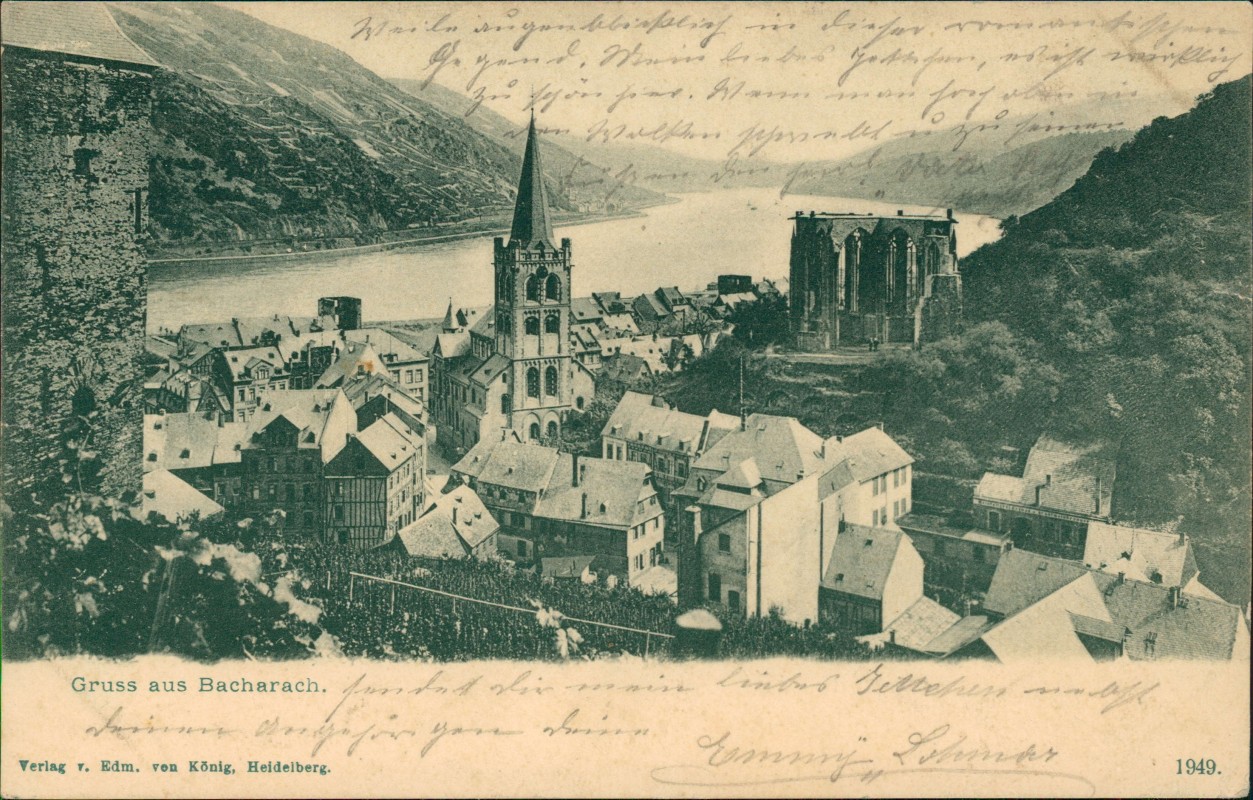 Weile augenblicklich in dieser romantischen
Gegend. Mein liebes Jettchen, es ist wirklich
zu schön hier. Wenn man hoch oben in
den Wolken schwebt u zu seinen
Füßen den Vater
Gruss aus Bacharach. sendet Dir mein liebes Jettchen nebst
deinen Angehörigen deine
Emmy Lohmar
Verlag v. Edm. von König, Heidelberg.
1949.